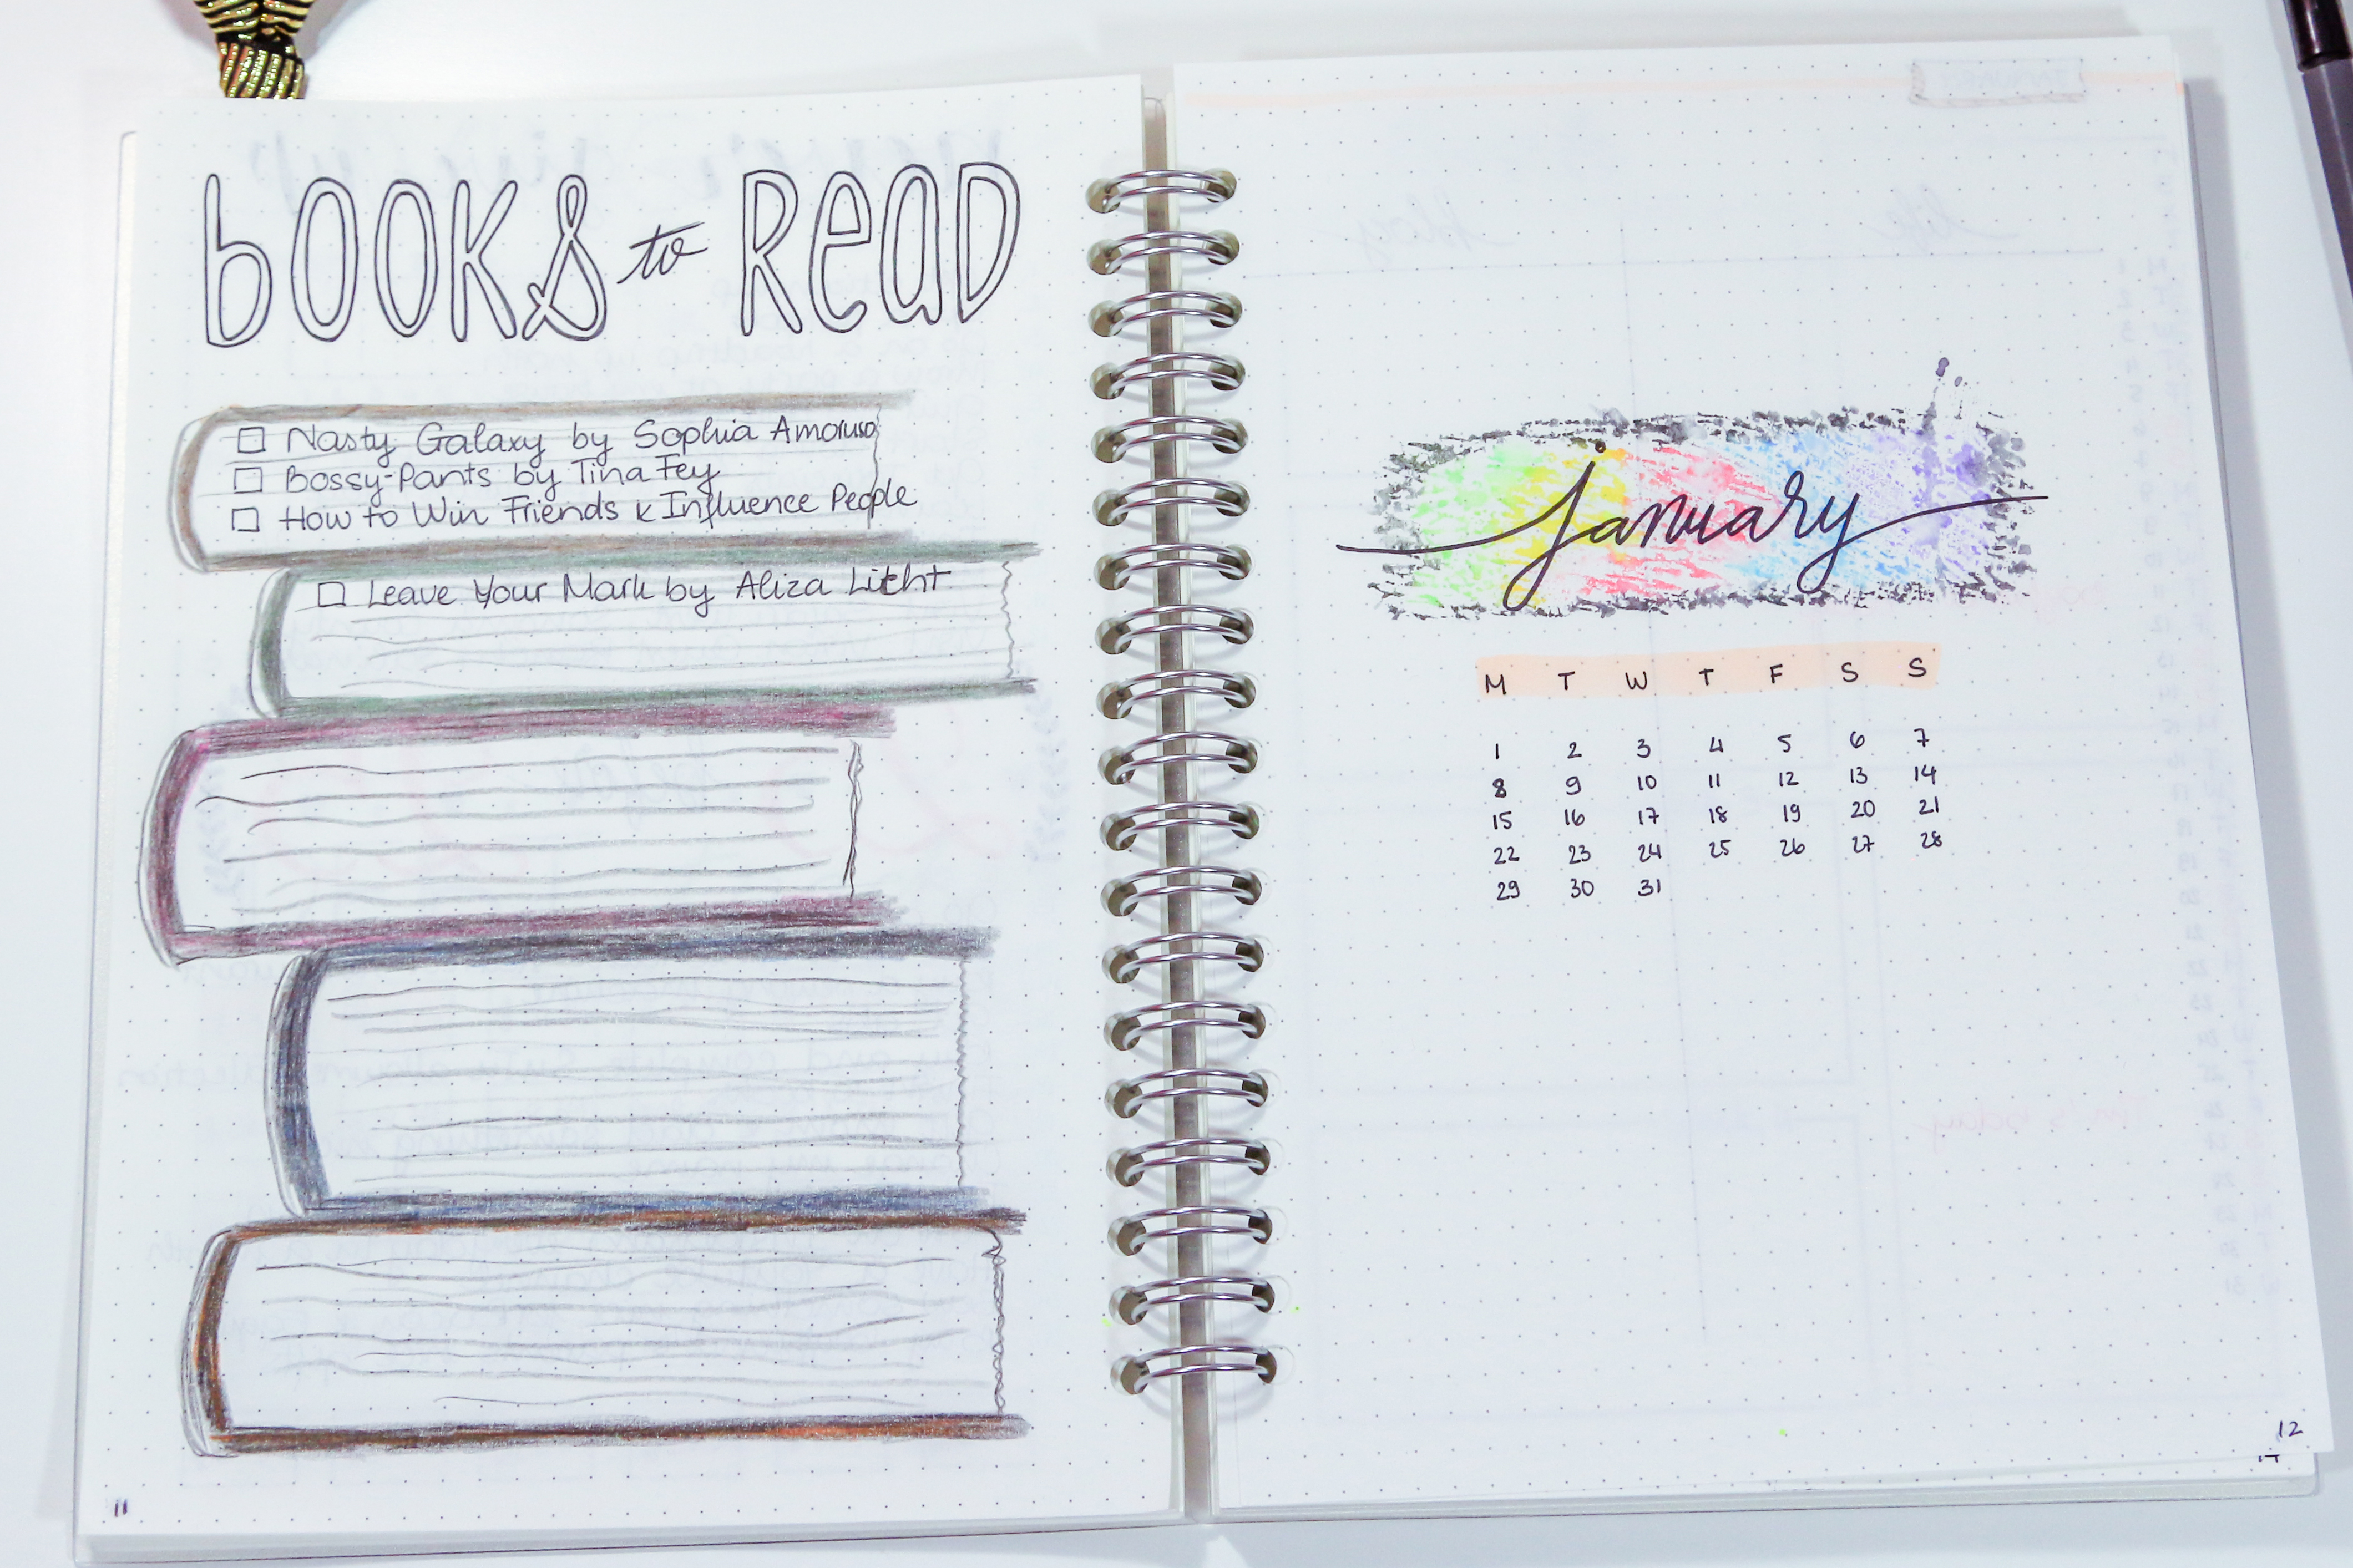 bOOKS to ReaD
Nasty Galaxy by Sophia Amoruso
Bossy-Pants by Tina Fey
How to Win Friends & Influence People
Leave Your Mark by Aliza Licht
11
january
M T W T F S S
1 2 3 4 5 6 7
8 9 10 11 12 13 14
15 16 17 18 19 20 21
22 23 24 25 26 27 28
29 30 31
12